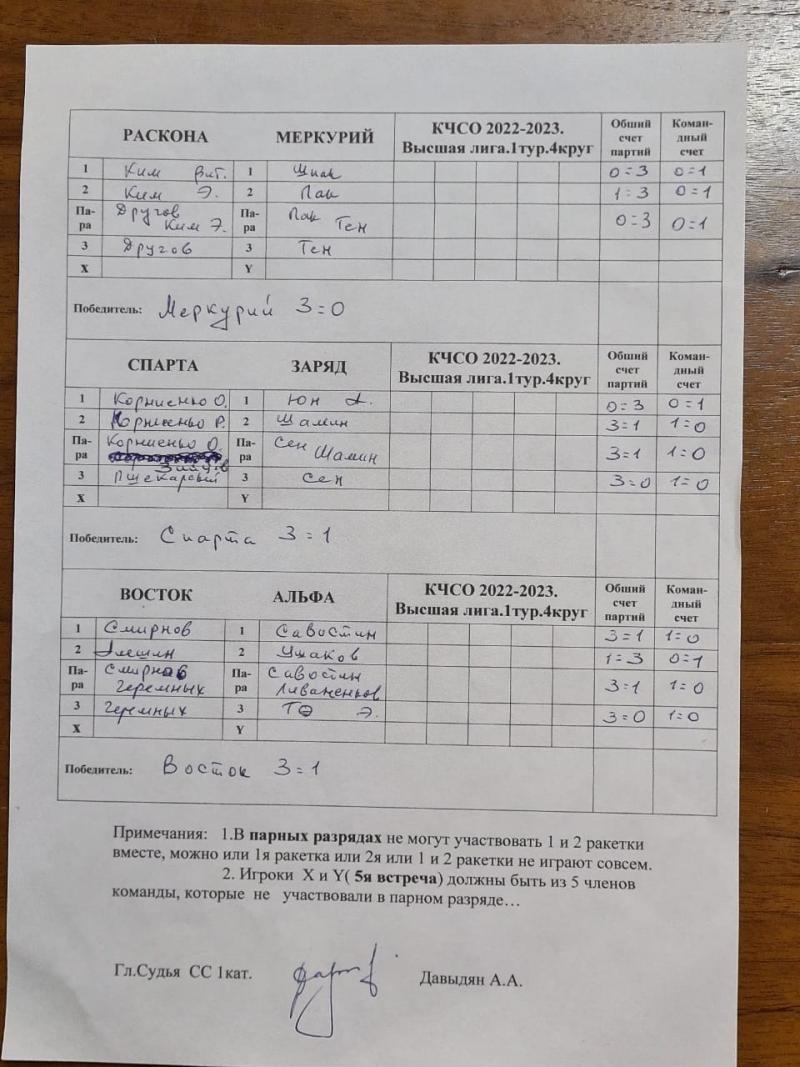 РАСКОНА МЕРКУРИЙ КЧСО 2022-2023. Высшая лига.1тур.4круг Общий счет партий Коман-дный счет
1 Ким Вит. 1 Цпак 0=3 0=1
2 Ким Э. 2 Пак 1=3 0=1
Па-ра Другов Ким Э. Па-ра Пак Тен 0=3 0=1
3 Другов 3 Тен
X Y
Победитель: Меркурий 3=0
СПАРТА ЗАРЯД КЧСО 2022-2023. Высшая лига.1тур.4круг Общий счет партий Коман-дный счет
1 Корниенко О. 1 Юн А. 0=3 0=1
2 Корниенко Р. 2 Шамин 3=1 1=0
Па-ра Корниенко О. Па-ра Сен Шамин 3=1 1=0
3 Пшекарский 3 Сен 3=0 1=0
X Y
Победитель: Спарта 3=1
ВОСТОК АЛЬФА КЧСО 2022-2023. Высшая лига.1тур.4круг Общий счет партий Коман-дный счет
1 Смирнов 1 Савостин 3=1 1=0
2 Алешин 2 Ушаков 1=3 0=1
Па-ра Смирнов Черемных Па-ра Савостин Ливаненков 3=1 1=0
3 Черемных 3 ТО Э. 3=0 1=0
X Y
Победитель: Восток 3=1
Примечания: 1.В парных разрядах не могут участвовать 1 и 2 ракетки
вместе, можно или 1я ракетка или 2я или 1 и 2 ракетки не играют совсем.
2. Игроки X и Y( 5я встреча) должны быть из 5 членов
команды, которые не участвовали в парном разряде…
Гл.Судья СС 1кат. Давыдян А.А.